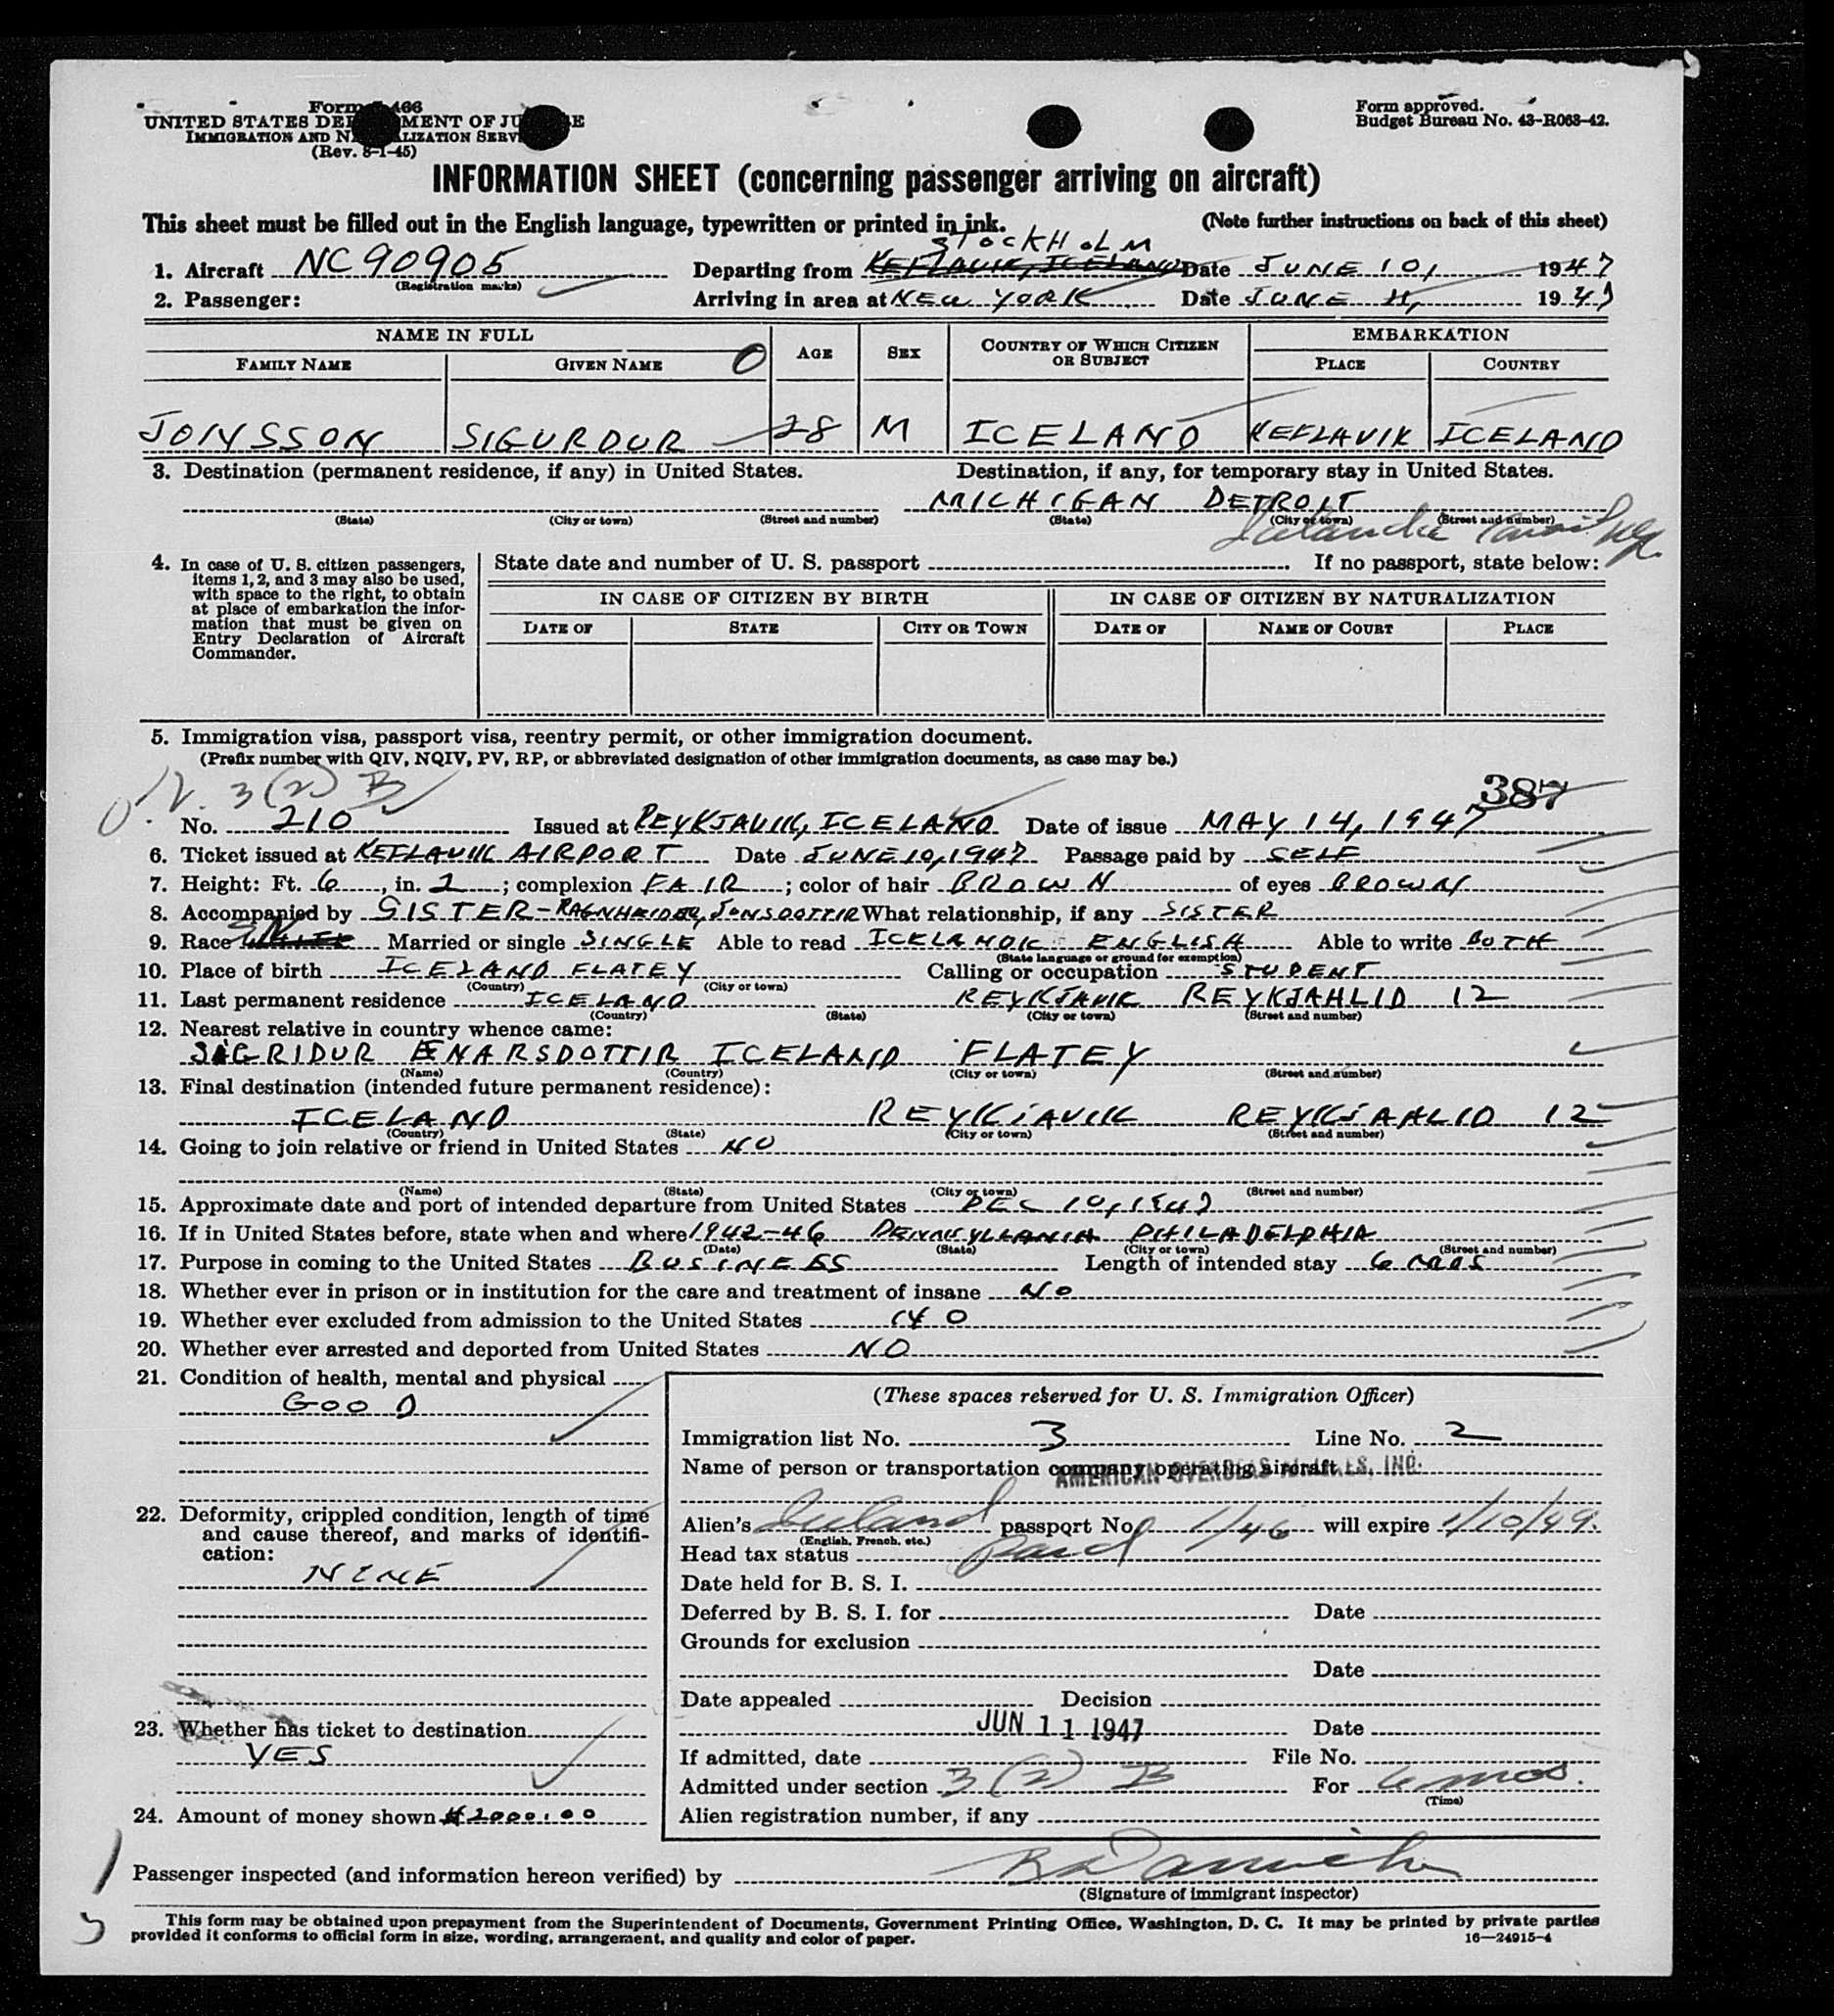 Form 466
UNITED STATES DEPARTMENT OF JUSTICE
IMMIGRATION AND NATURALIZATION SERVICE
(Rev. 8-1-45)
Form approved.
Budget Bureau No. 43-R063-42.
INFORMATION SHEET (concerning passenger arriving on aircraft)
This sheet must be filled out in the English language, typewritten or printed in ink. (Note further instructions on back of this sheet)
STOCKHOLM
1. Aircraft NC90905 Departing from KEFLAVIK, ICELAND Date JUNE 10, 1947
(Registration marks)
2. Passenger: Arriving in area at NEW YORK Date JUNE 11, 1947
NAME IN FULL AGE SEX COUNTRY OF WHICH CITIZEN OR SUBJECT EMBARKATION
FAMILY NAME GIVEN NAME PLACE COUNTRY
JONSSON SIGURDUR 28 M ICELAND KEFLAVIK ICELAND
3. Destination (permanent residence, if any) in United States. Destination, if any, for temporary stay in United States.
MICHIGAN DETROIT
(State) (City or town) (Street and number) (State) (City or town) (Street and number)
4. In case of U. S. citizen passengers, items 1, 2, and 3 may also be used, with space to the right, to obtain at place of embarkation the information that must be given on Entry Declaration of Aircraft Commander.
State date and number of U. S. passport If no passport, state below:
IN CASE OF CITIZEN BY BIRTH IN CASE OF CITIZEN BY NATURALIZATION
DATE OF STATE CITY OR TOWN DATE OF NAME OF COURT PLACE
5. Immigration visa, passport visa, reentry permit, or other immigration document.
(Prefix number with QIV, NQIV, PV, RP, or abbreviated designation of other immigration documents, as case may be.)
3(2) B 387
No. 210 Issued at REYKJAVIK, ICELAND Date of issue MAY 14, 1947
6. Ticket issued at KEFLAVIK AIRPORT Date JUNE 10, 1947 Passage paid by SELF
7. Height: Ft. 6, in. 2; complexion FAIR; color of hair BROWN of eyes BROWN
8. Accompanied by SISTER-RAGNHEIDUR JONSDOTTIR What relationship, if any SISTER
9. Race WHITE Married or single SINGLE Able to read ICELANDIC ENGLISH Able to write BOTH
(State language or ground for exemption)
10. Place of birth ICELAND FLATEY Calling or occupation STUDENT
(Country) (City or town)
11. Last permanent residence ICELAND REYKJAVIK REYKJAHLID 12
(Country) (State) (City or town) (Street and number)
12. Nearest relative in country whence came:
SIGRIDUR EINARSDOTTIR ICELAND FLATEY
(Name) (Country) (City or town) (Street and number)
13. Final destination (intended future permanent residence):
ICELAND REYKJAVIK REYKJAHLID 12
(Country) (State) (City or town) (Street and number)
14. Going to join relative or friend in United States NO
(Name) (State) (City or town) (Street and number)
15. Approximate date and port of intended departure from United States DEC 10, 1947
16. If in United States before, state when and where 1942-46 PENNSYLVANIA PHILADELPHIA
(Date) (State) (City or town) (Street and number)
17. Purpose in coming to the United States BUSINESS Length of intended stay 6 MOS
18. Whether ever in prison or in institution for the care and treatment of insane NO
19. Whether ever excluded from admission to the United States NO
20. Whether ever arrested and deported from United States NO
21. Condition of health, mental and physical
GOOD
22. Deformity, crippled condition, length of time and cause thereof, and marks of identification:
NINE
23. Whether has ticket to destination
YES
24. Amount of money shown $2000.00
(These spaces reserved for U. S. Immigration Officer)
Immigration list No. 3 Line No. 2
Name of person or transportation company operating aircraft AMERICAN OVERSEAS AIRLINES, INC.
Alien's Iceland passport No. 1/46 will expire 1/10/49.
(English, French, etc.)
Head tax status paid
Date held for B. S. I.
Deferred by B. S. I. for Date
Grounds for exclusion
Date
Date appealed Decision
JUN 11 1947 Date
If admitted, date File No.
Admitted under section 3 (2) B For 6 mos.
(Time)
Alien registration number, if any
Passenger inspected (and information hereon verified) by
(Signature of immigrant inspector)
This form may be obtained upon prepayment from the Superintendent of Documents, Government Printing Office, Washington, D. C. It may be printed by private parties
provided it conforms to official form in size, wording, arrangement, and quality and color of paper. 16—24915-4